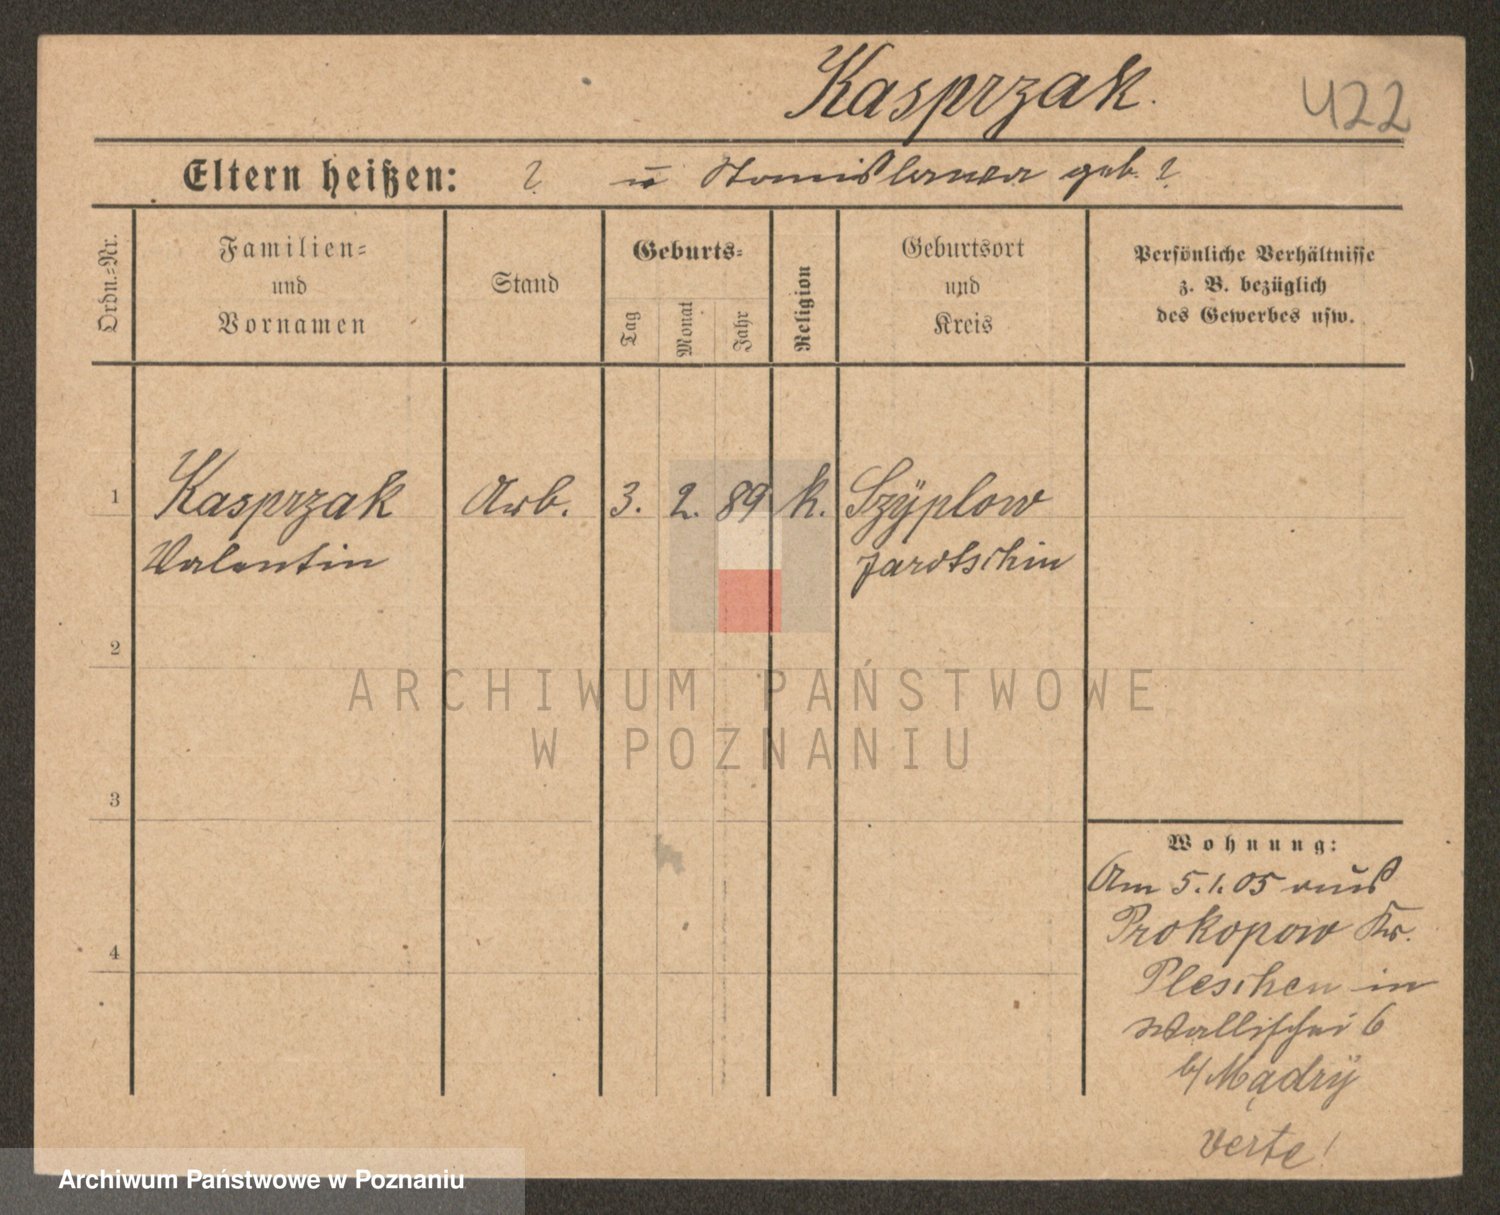 Kasprzak.
422
Eltern heißen: ? u Stanislawa geb. ?
Ordn.-Nr.
Familien-
und
Vornamen
Stand
Geburts-
Tag
Monat
Jahr
Religion
Geburtsort
und
Kreis
Persönliche Verhältnisse
z. B. bezüglich
des Gewerbes usw.
1 Kasprzak Arb. 3. 2. 89 k. Szÿplow
Valentin Jarotschin
2
ARCHIWUM PAŃSTWOWE
W POZNANIU
3
Wohnung:
Am 5.1.05 aus
Prokopow Kr.
4
Pleschen in
Wallischei 6
b/ Mądrÿ
verte!
Archiwum Państwowe w Poznaniu